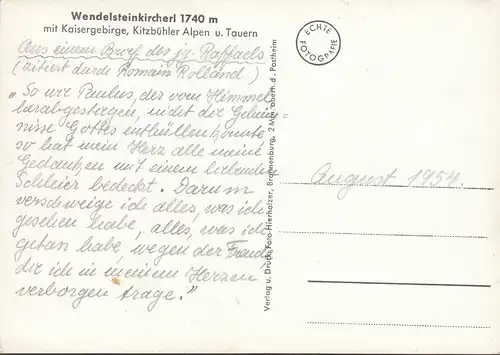 Wendelsteinkircherl 1740 m
mit Kaisergebirge, Kitzbühler Alpen u. Tauern
Aus einem Brief des jg. Raffaels
(zitiert durch Romain Rolland)
"So wie Paulus, der vom Himmel
herabgestiegen, nicht die Geheim-
nisse Gottes enthüllen konnte
so hat mein Herz alle meine
Gedanken mit einem liebenden
Schleier bedeckt. Darum
verschweige ich alles, was ich
gesehen habe, alles, was ich
getan habe, wegen der Freude
die ich in meinem Herzen
verborgen trage."
Verlag u. Druck Foto-Hierholzer, Brannenburg, 2 Mü. Oberh. d. Postheim
ECHTE
FOTOGRAFIE
August 1954.